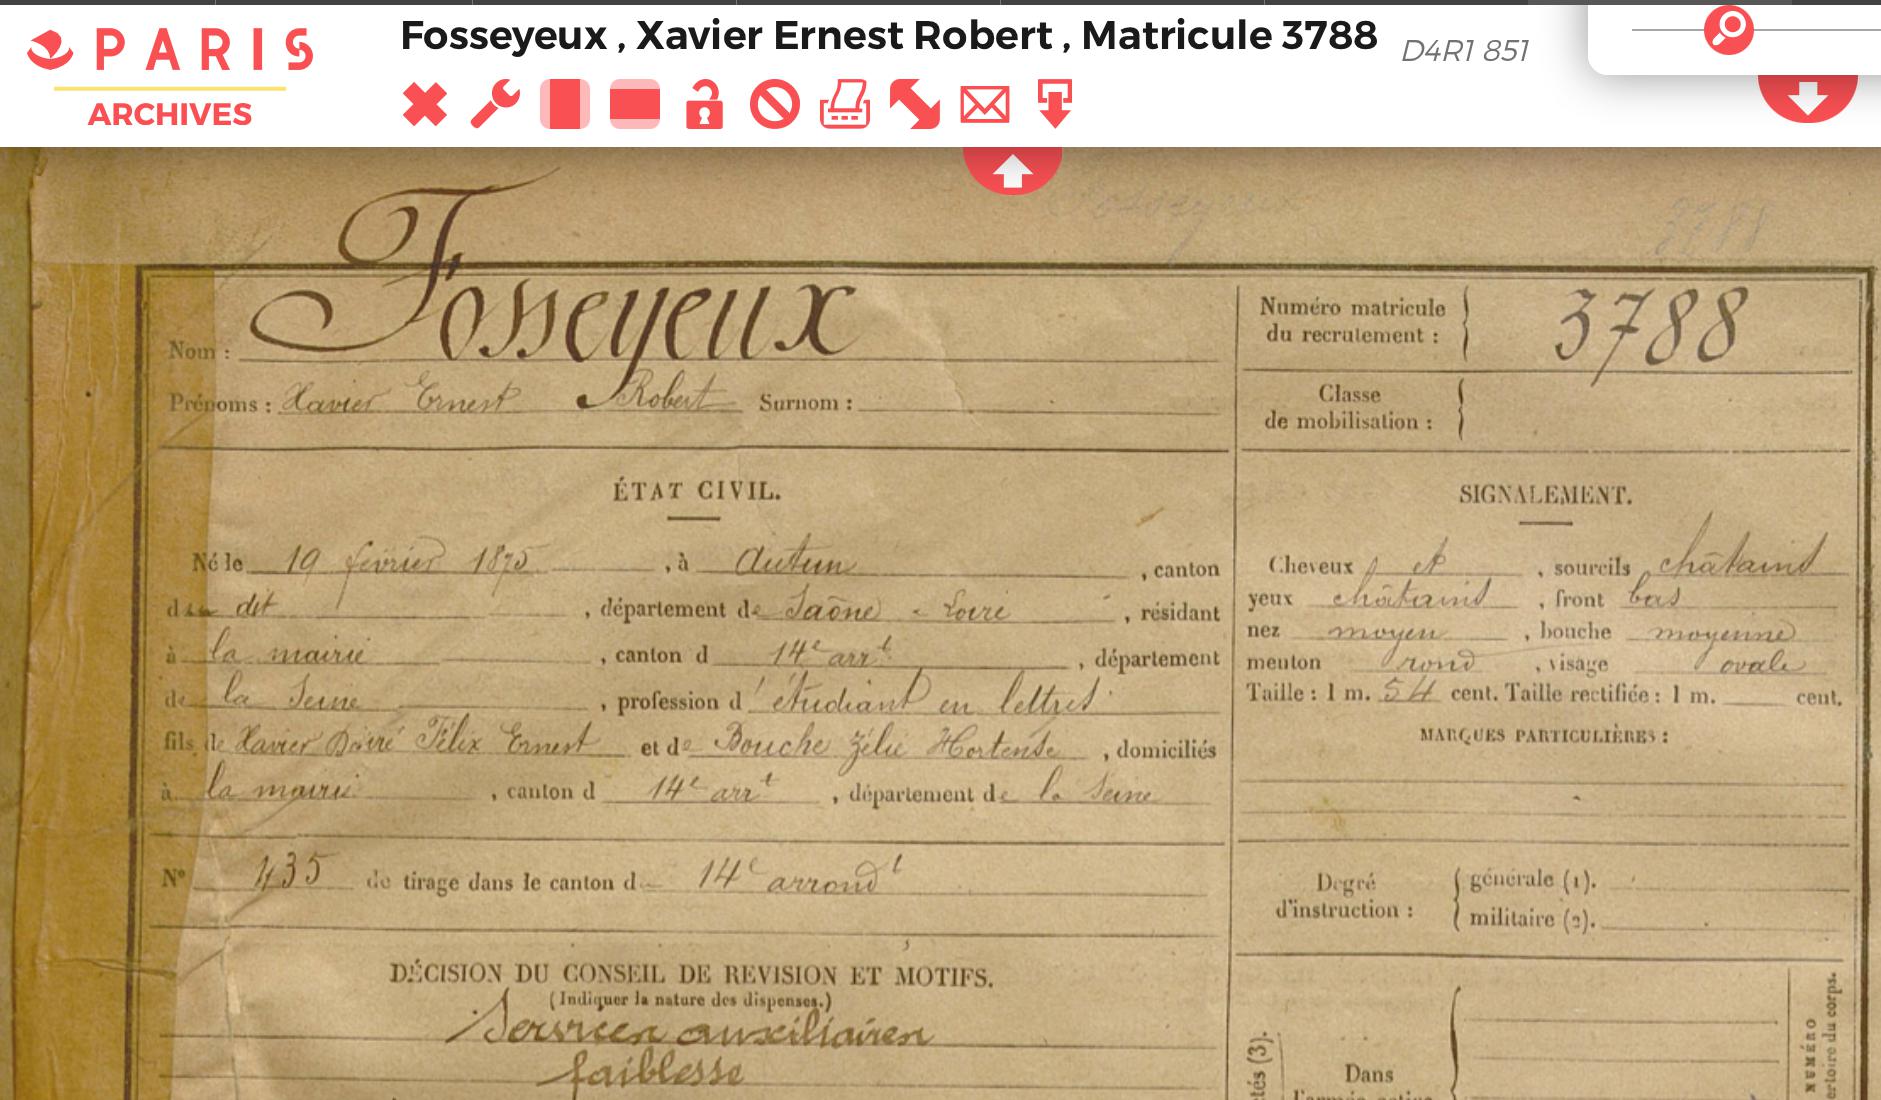 PARIS
ARCHIVES
Fosseyeux , Xavier Ernest Robert , Matricule 3788
D4R1 851
Fosseyeux
3788
Nom : Fosseyeux
Prénoms : Xavier Ernest Robert Surnom :
Numéro matricule
du recrutement : 3788
Classe
de mobilisation :
ÉTAT CIVIL.
Né le 19 février 1875, à Autun, canton
du dit, département de Saône & Loire, résidant
à la mairie, canton d 14e arrt, département
de la Seine, profession d'étudiant en lettres
fils de Xavier Félix Ernest et de Bouche Zélie Hortense, domiciliés
à la mairie, canton d 14e arrt, département de la Seine
N° 435 de tirage dans le canton d 14e arrondt
DÉCISION DU CONSEIL DE REVISION ET MOTIFS.
(Indiquer la nature des dispenses.)
Services auxiliaires
faiblesse
SIGNALEMENT.
Cheveux et, sourcils châtains
yeux châtains, front bas
nez moyen, bouche moyenne
menton rond, visage ovale
Taille : 1 m. 54 cent. Taille rectifiée : 1 m. cent.
MARQUES PARTICULIÈRES :
Degré
d'instruction :
générale (1).
militaire (2).
Dans
l'armée active
NUMÉRO